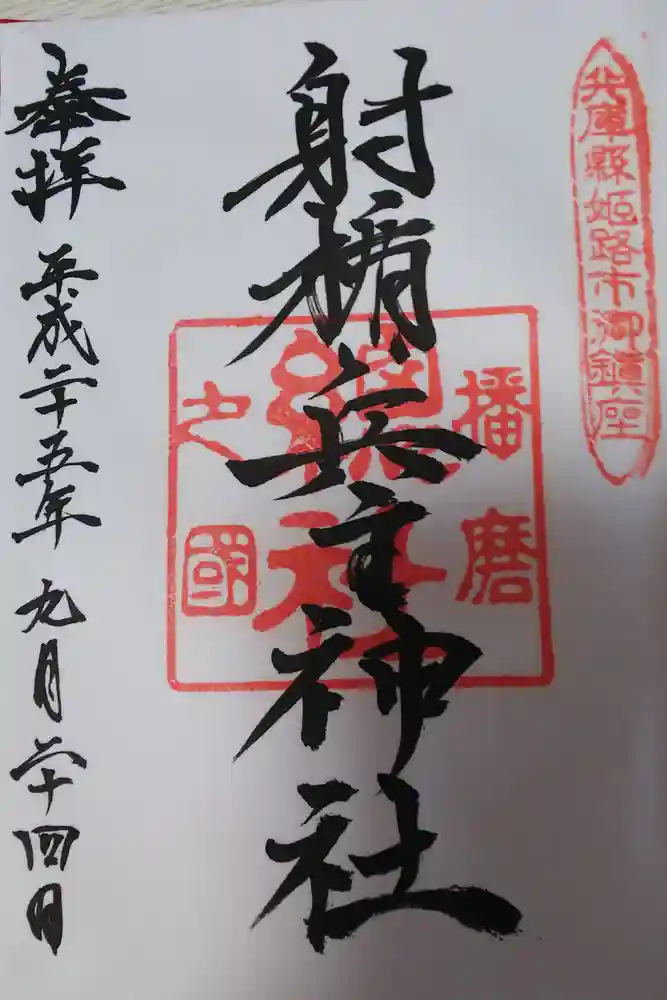 兵庫縣姫路市御鎮座
射楯兵主神社
播磨
總社
之國
奉拝 平成二十五年 九月二十四日